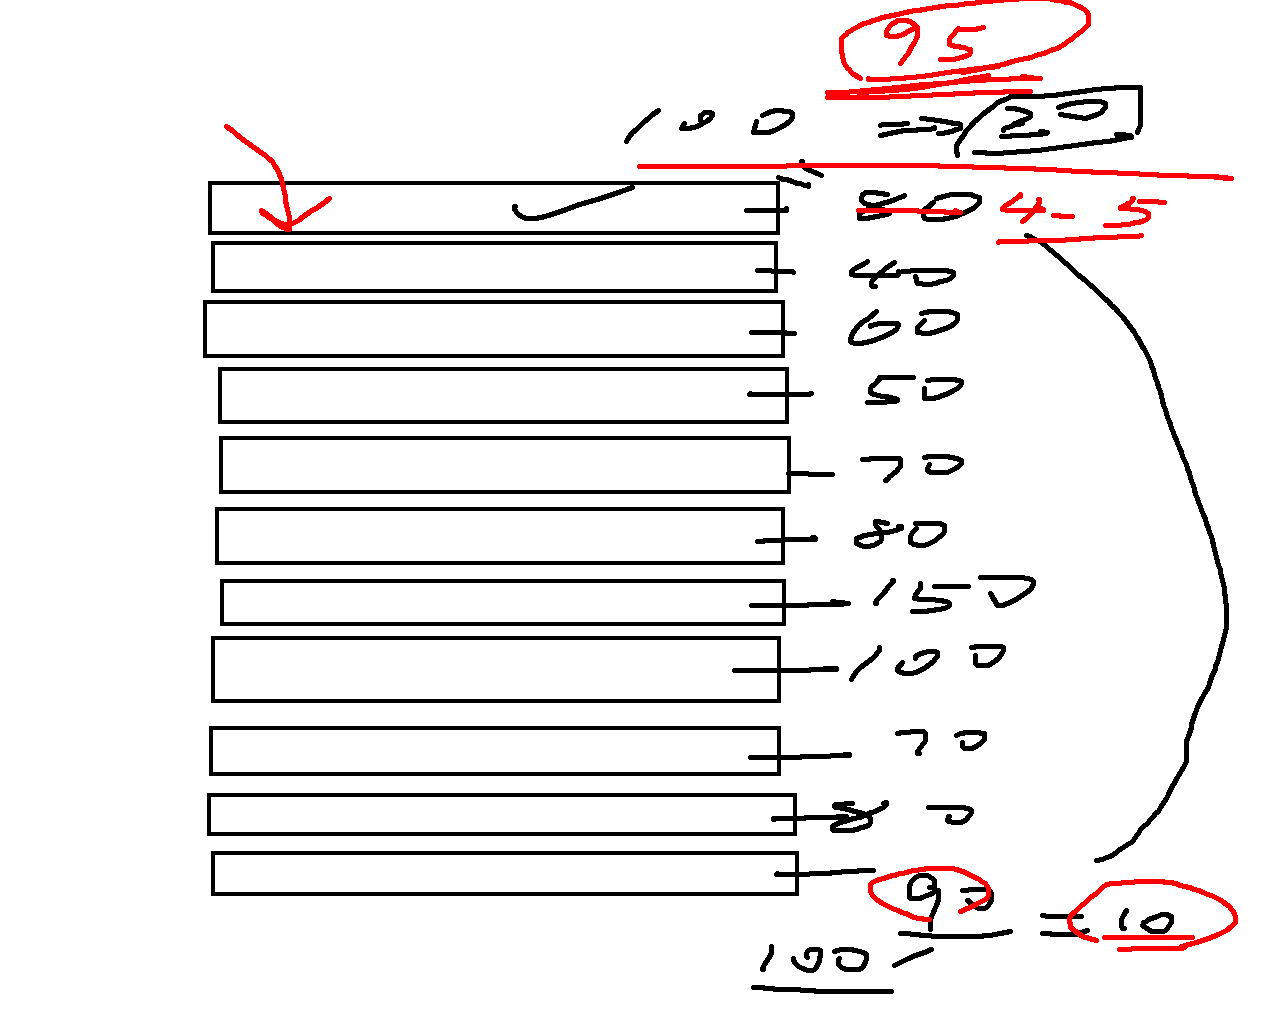 95
100 => 20
80 4-5
40
60
50
70
80
150
100
70
80
90 = 10
100 -